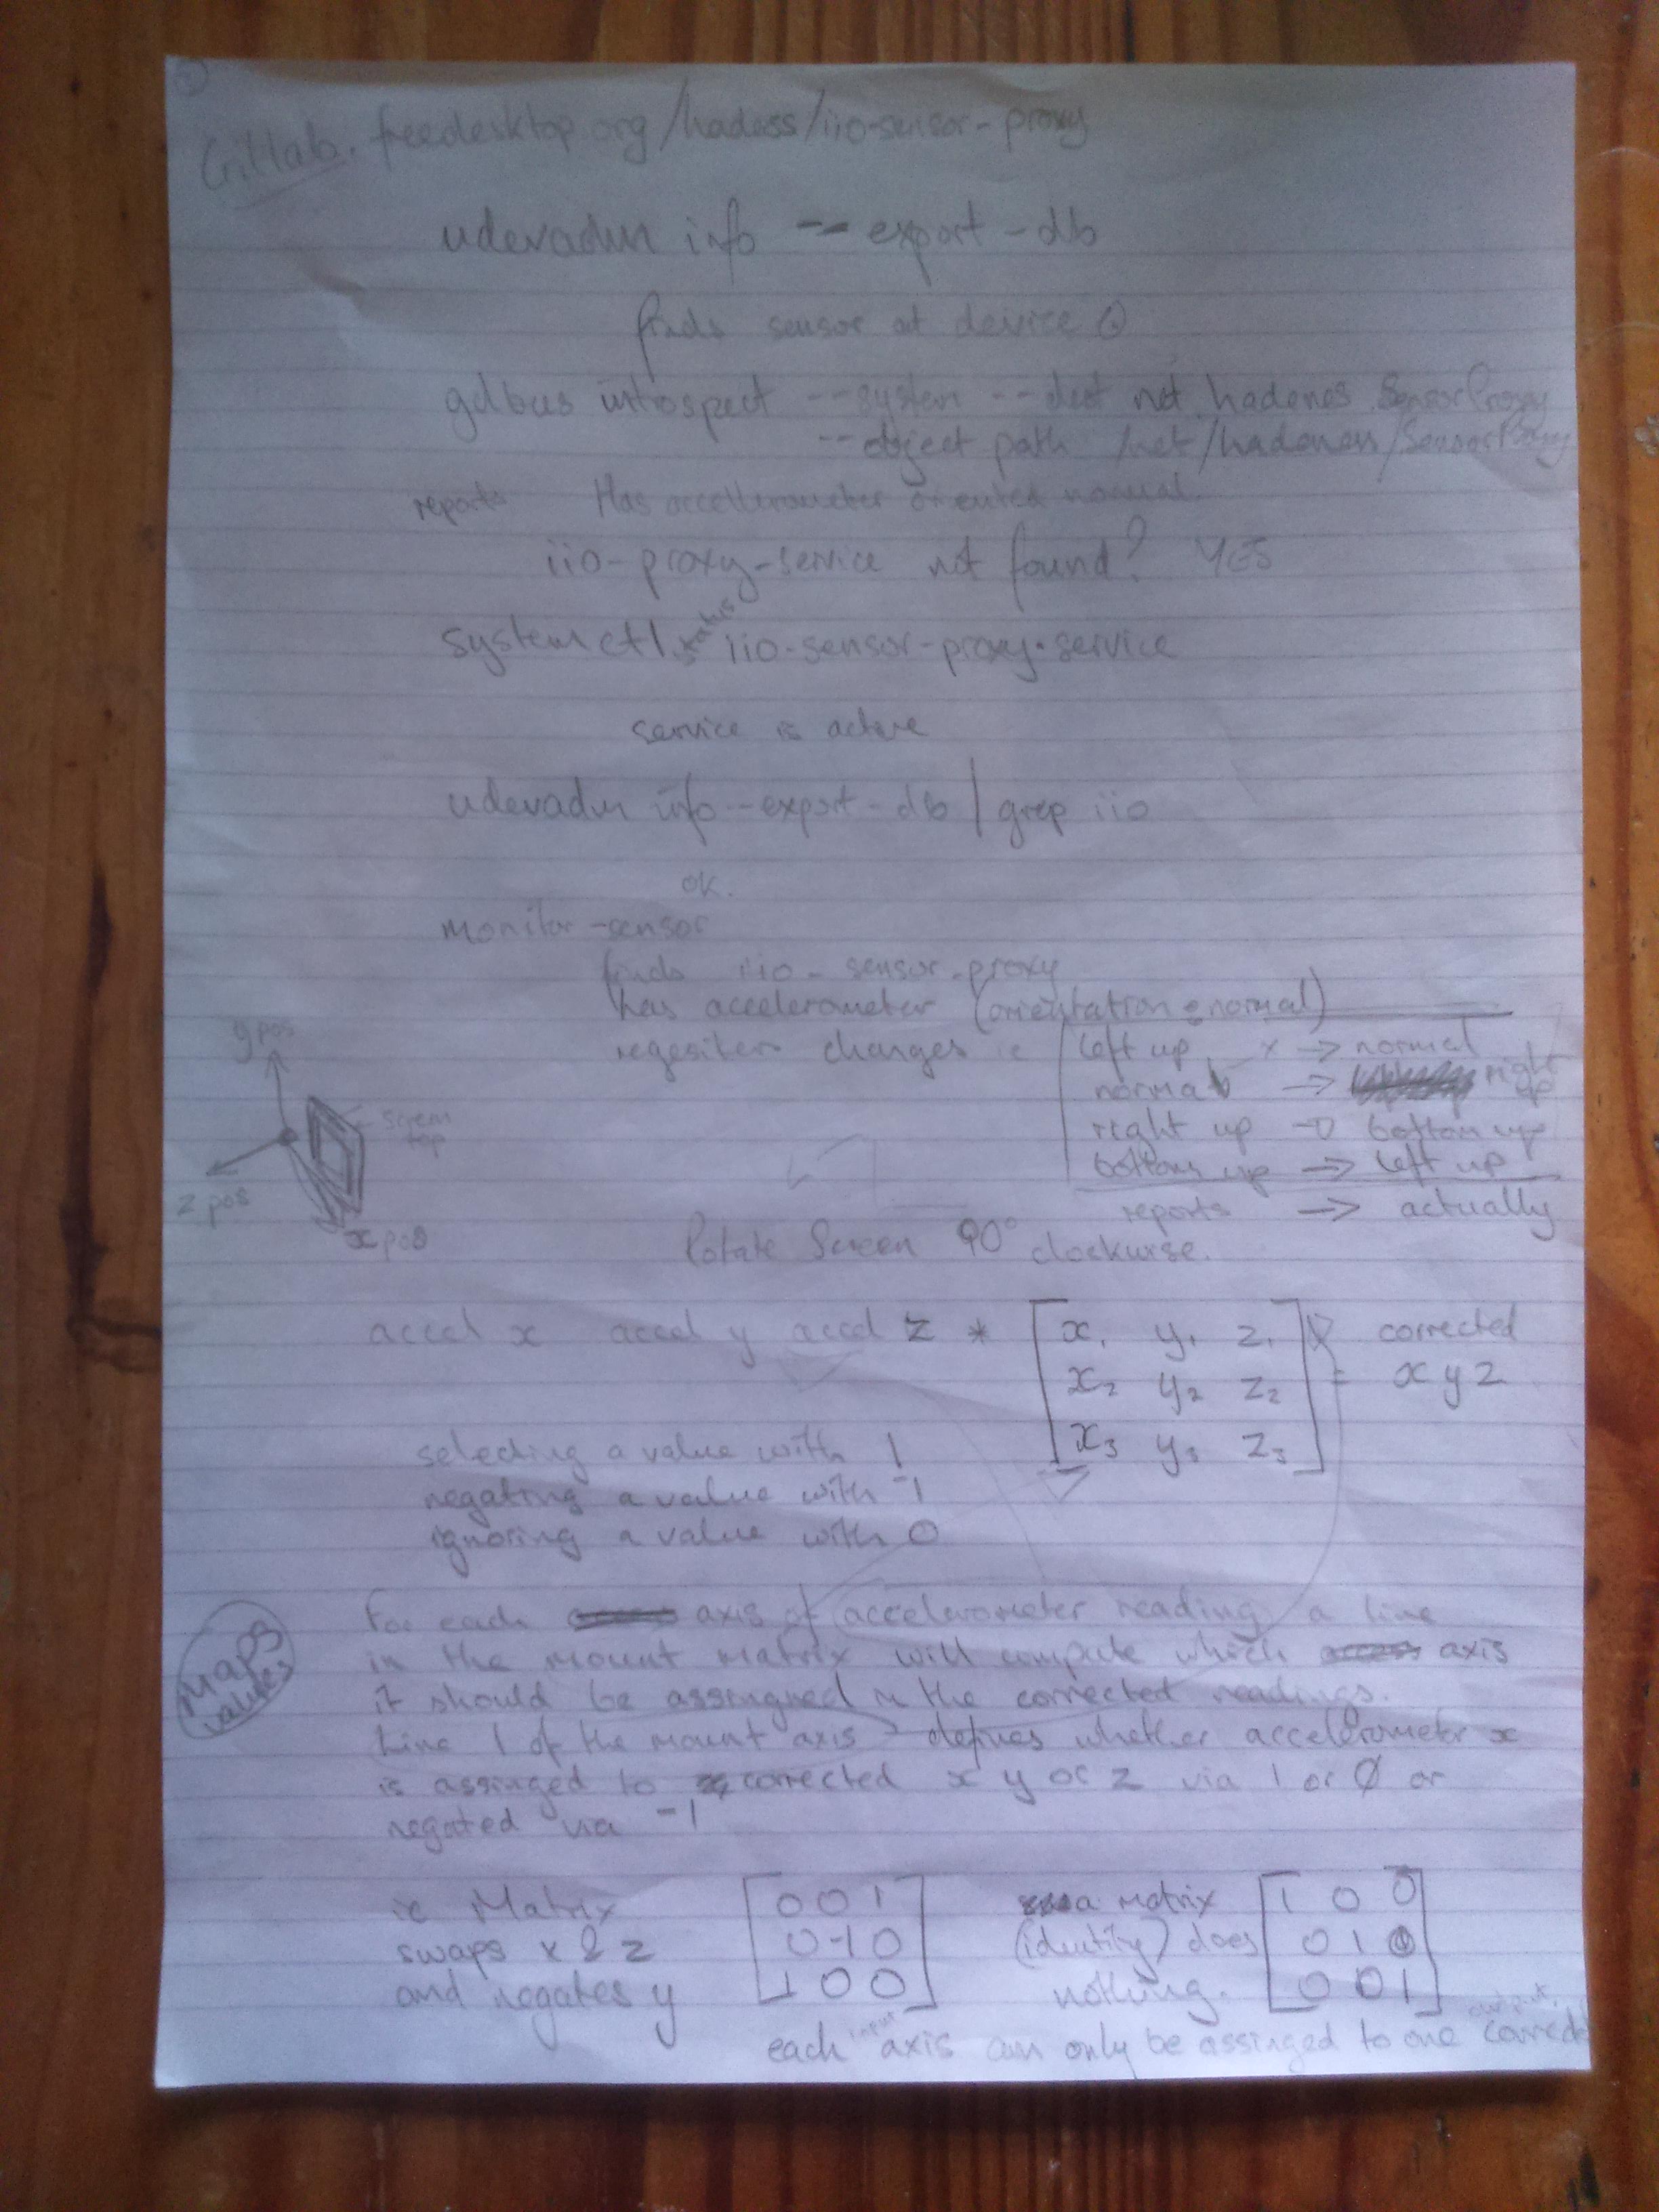 Gitlab.freedesktop.org/hadess/iio-sensor-proxy
udevadm info -- export - db
finds sensor at device
gdbus introspect --system --dest net.hadenes SensorProxy
--object path /net/hadeness/SensorProxy
reports Has accellerometer oriented normal.
iio-proxy-service not found? YES
systemctl status iio-sensor-proxy.service
service is active
udevadm info --export-db | grep iio
ok.
monitor-sensor
finds iio-sensor-proxy
has accelerometer (orientation = normal)
regesiters changes ie
left up x -> normal
normal -> right up
right up -> bottom up
bottom up -> left up
reports -> actually
y pos
screen top
z pos
x pos
Rotate Screen 90° clockwise.
accel x accel y accel z *
[x₁ y₁ z₁
x₂ y₂ z₂
x₃ y₃ z₃]
= corrected
x y z
selecting a value with 1
negating a value with -1
ignoring a value with 0
Maps values
For each axis of accelerometer reading a line
in the mount matrix will compute which axis
it should be assingned in the corrected readings.
Line 1 of the mount axis defines whether accelerometer x
is assinged to corrected x y or z via 1 or Ø or
negated via -1
ie Matrix
swaps x & z
and negates y
[0 0 1
0 -1 0
1 0 0]
a matrix
(identity) does
nothing.
[1 0 0
0 1 0
0 0 1]
each input axis can only be assinged to one